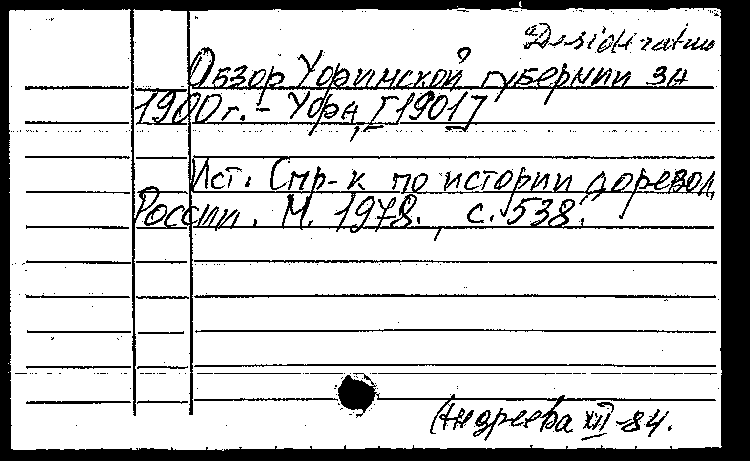 Desideratum
Обзор Уфимской губернии за
1900 г. - Уфа, [1901]
Ист. Спр-к по истории доревол.
России. М. 1978., с. 538.
Андреева XII-84.